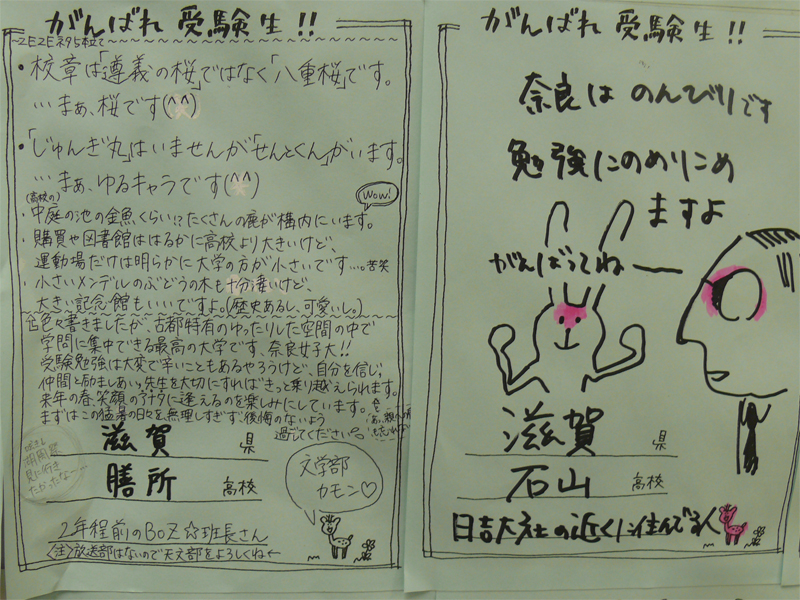 がんばれ 受験生!!
・校章は「遵義の桜」ではなく「八重桜」です。
…まぁ、桜です(^^)
・「じゅんぎ丸」はいませんが「せんとくん」がいます。
…まぁ、ゆるキャラです(^^)
(高校の)
Wow!
・中庭の池の金魚くらい!?たくさんの鹿が構内にいます。
・購買や図書館ははるかに高校より大きいけど、
運動場だけは明らかに大学の方が小さいです…。苦笑
・小さいメンデルのぶどうの木も十分凄いけど、
大きい記念館もいいですよ。(歴史あるし、可愛いし。)
色々書きましたが、古都特有のゆったりした空間の中で
学問に集中できる最高の大学です、奈良女子大!!
受験勉強は大変で辛いこともあるやろうけど、自分を信じ、
仲間と励ましあい、先生を大切にすればきっと乗り越えられます。
来年の春、笑顔のアナタに逢えるのを楽しみにしています。
まずはこの猛暑の日々を無理しすぎず、後悔のないよう
過ごしてください。
滋賀 県
膳所 高校
文学部
カモン♡
2年程前のBOZ☆班長さん
(注)放送部はないので天文部をよろしくね←
がんばれ 受験生!!
奈良は のんびりです
勉強にのめりこめ
ますよ
がんばってねー
滋賀 県
石山 高校
日吉大社の近くに住んでる人